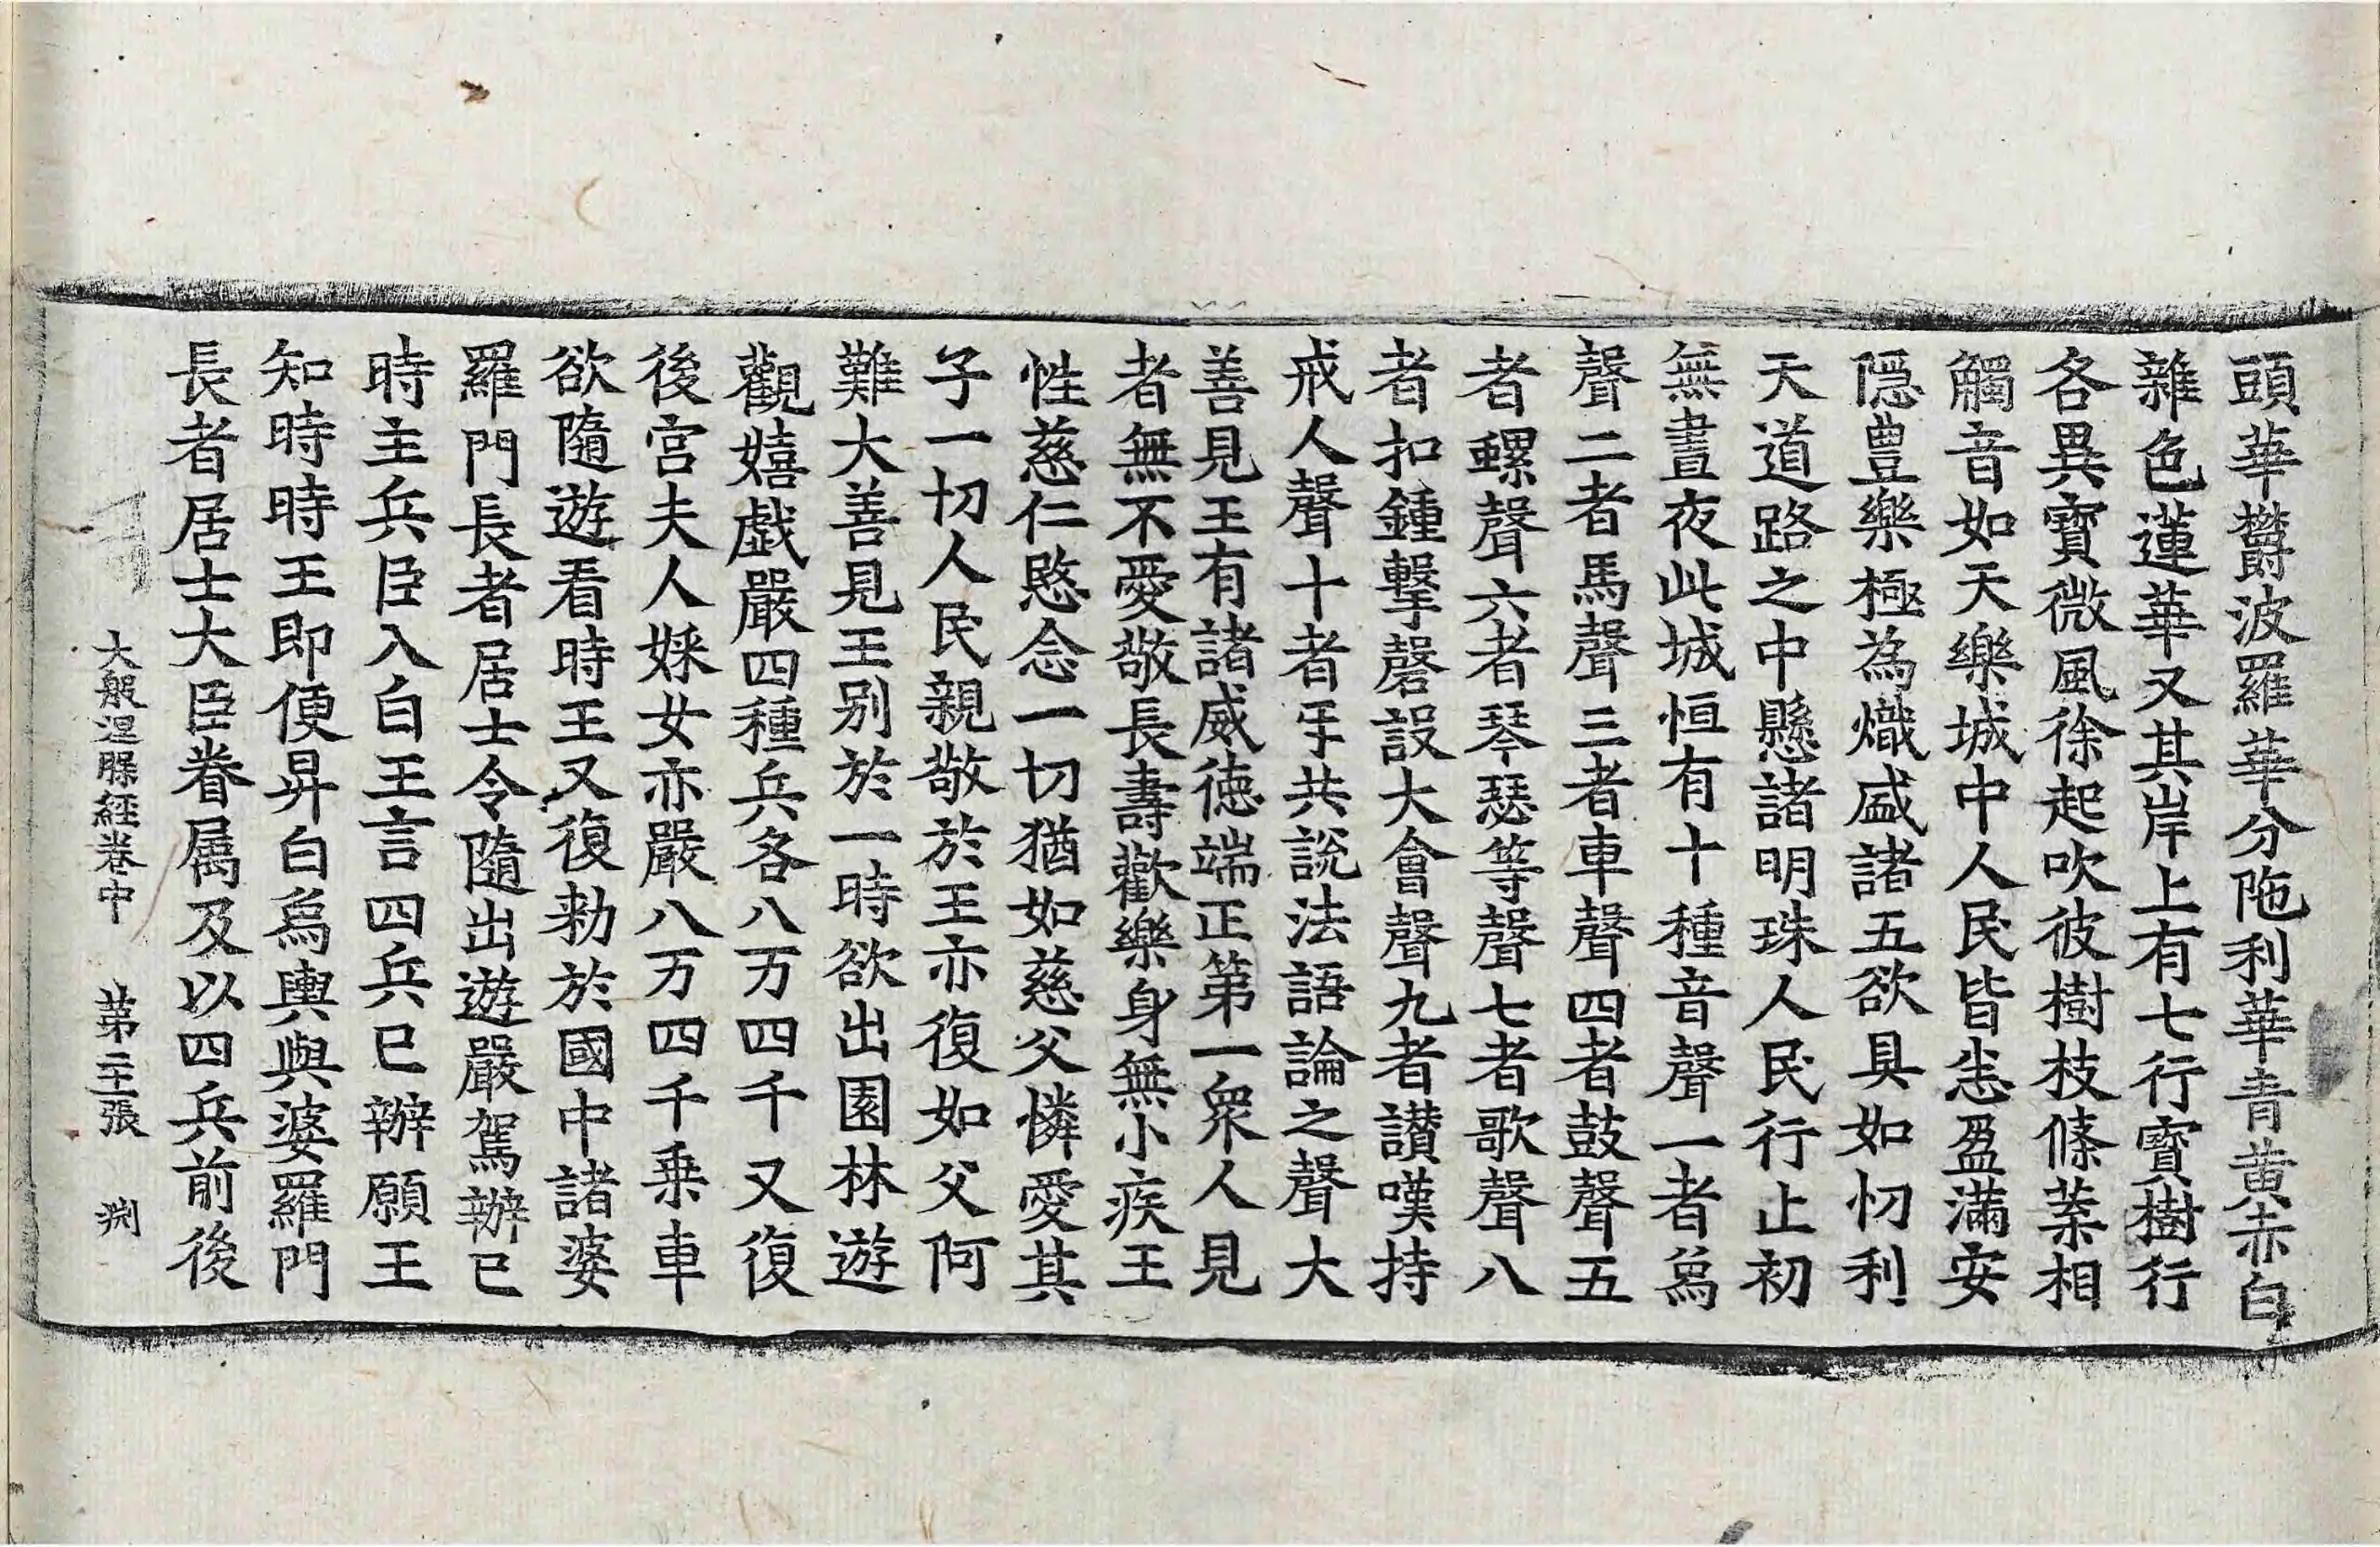 頭華欝波羅華分陁利華青黃赤白
雜色蓮華又其岸上有七行寶樹行
各異寶微風徐起吹彼樹枝條葉相
觸音如天樂城中人民皆悉盈滿安
隱豊樂極為熾盛諸五欲具如忉利
天道路之中懸諸明珠人民行止初
無晝夜此城恒有十種音聲一者烏
聲二者馬聲三者車聲四者鼓聲五
者螺聲六者琴瑟等聲七者歌聲八
者扣鍾擊磬設大會聲九者讃嘆持
戒人聲十者乎共說法語論之聲大
善見王有諸威德端正第一衆人見
者無不愛敬長壽歡樂身無小疾王
性慈仁愍念一切猶如慈父憐愛其
子一切人民親敬於王亦復如父阿
難大善見王別於一時欲出園林遊
觀嬉戯嚴四種兵各八万四千又復
後宮夫人婇女亦嚴八万四千乗車
欲隨遊看時王又復勑於國中諸婆
羅門長者居士令隨出遊嚴駕辦已
時主兵臣入白王言四兵已辦願王
知時時王即便昇白烏輿與婆羅門
長者居士大臣眷属及以四兵前後
大般涅槃經卷中 第二十張 渕